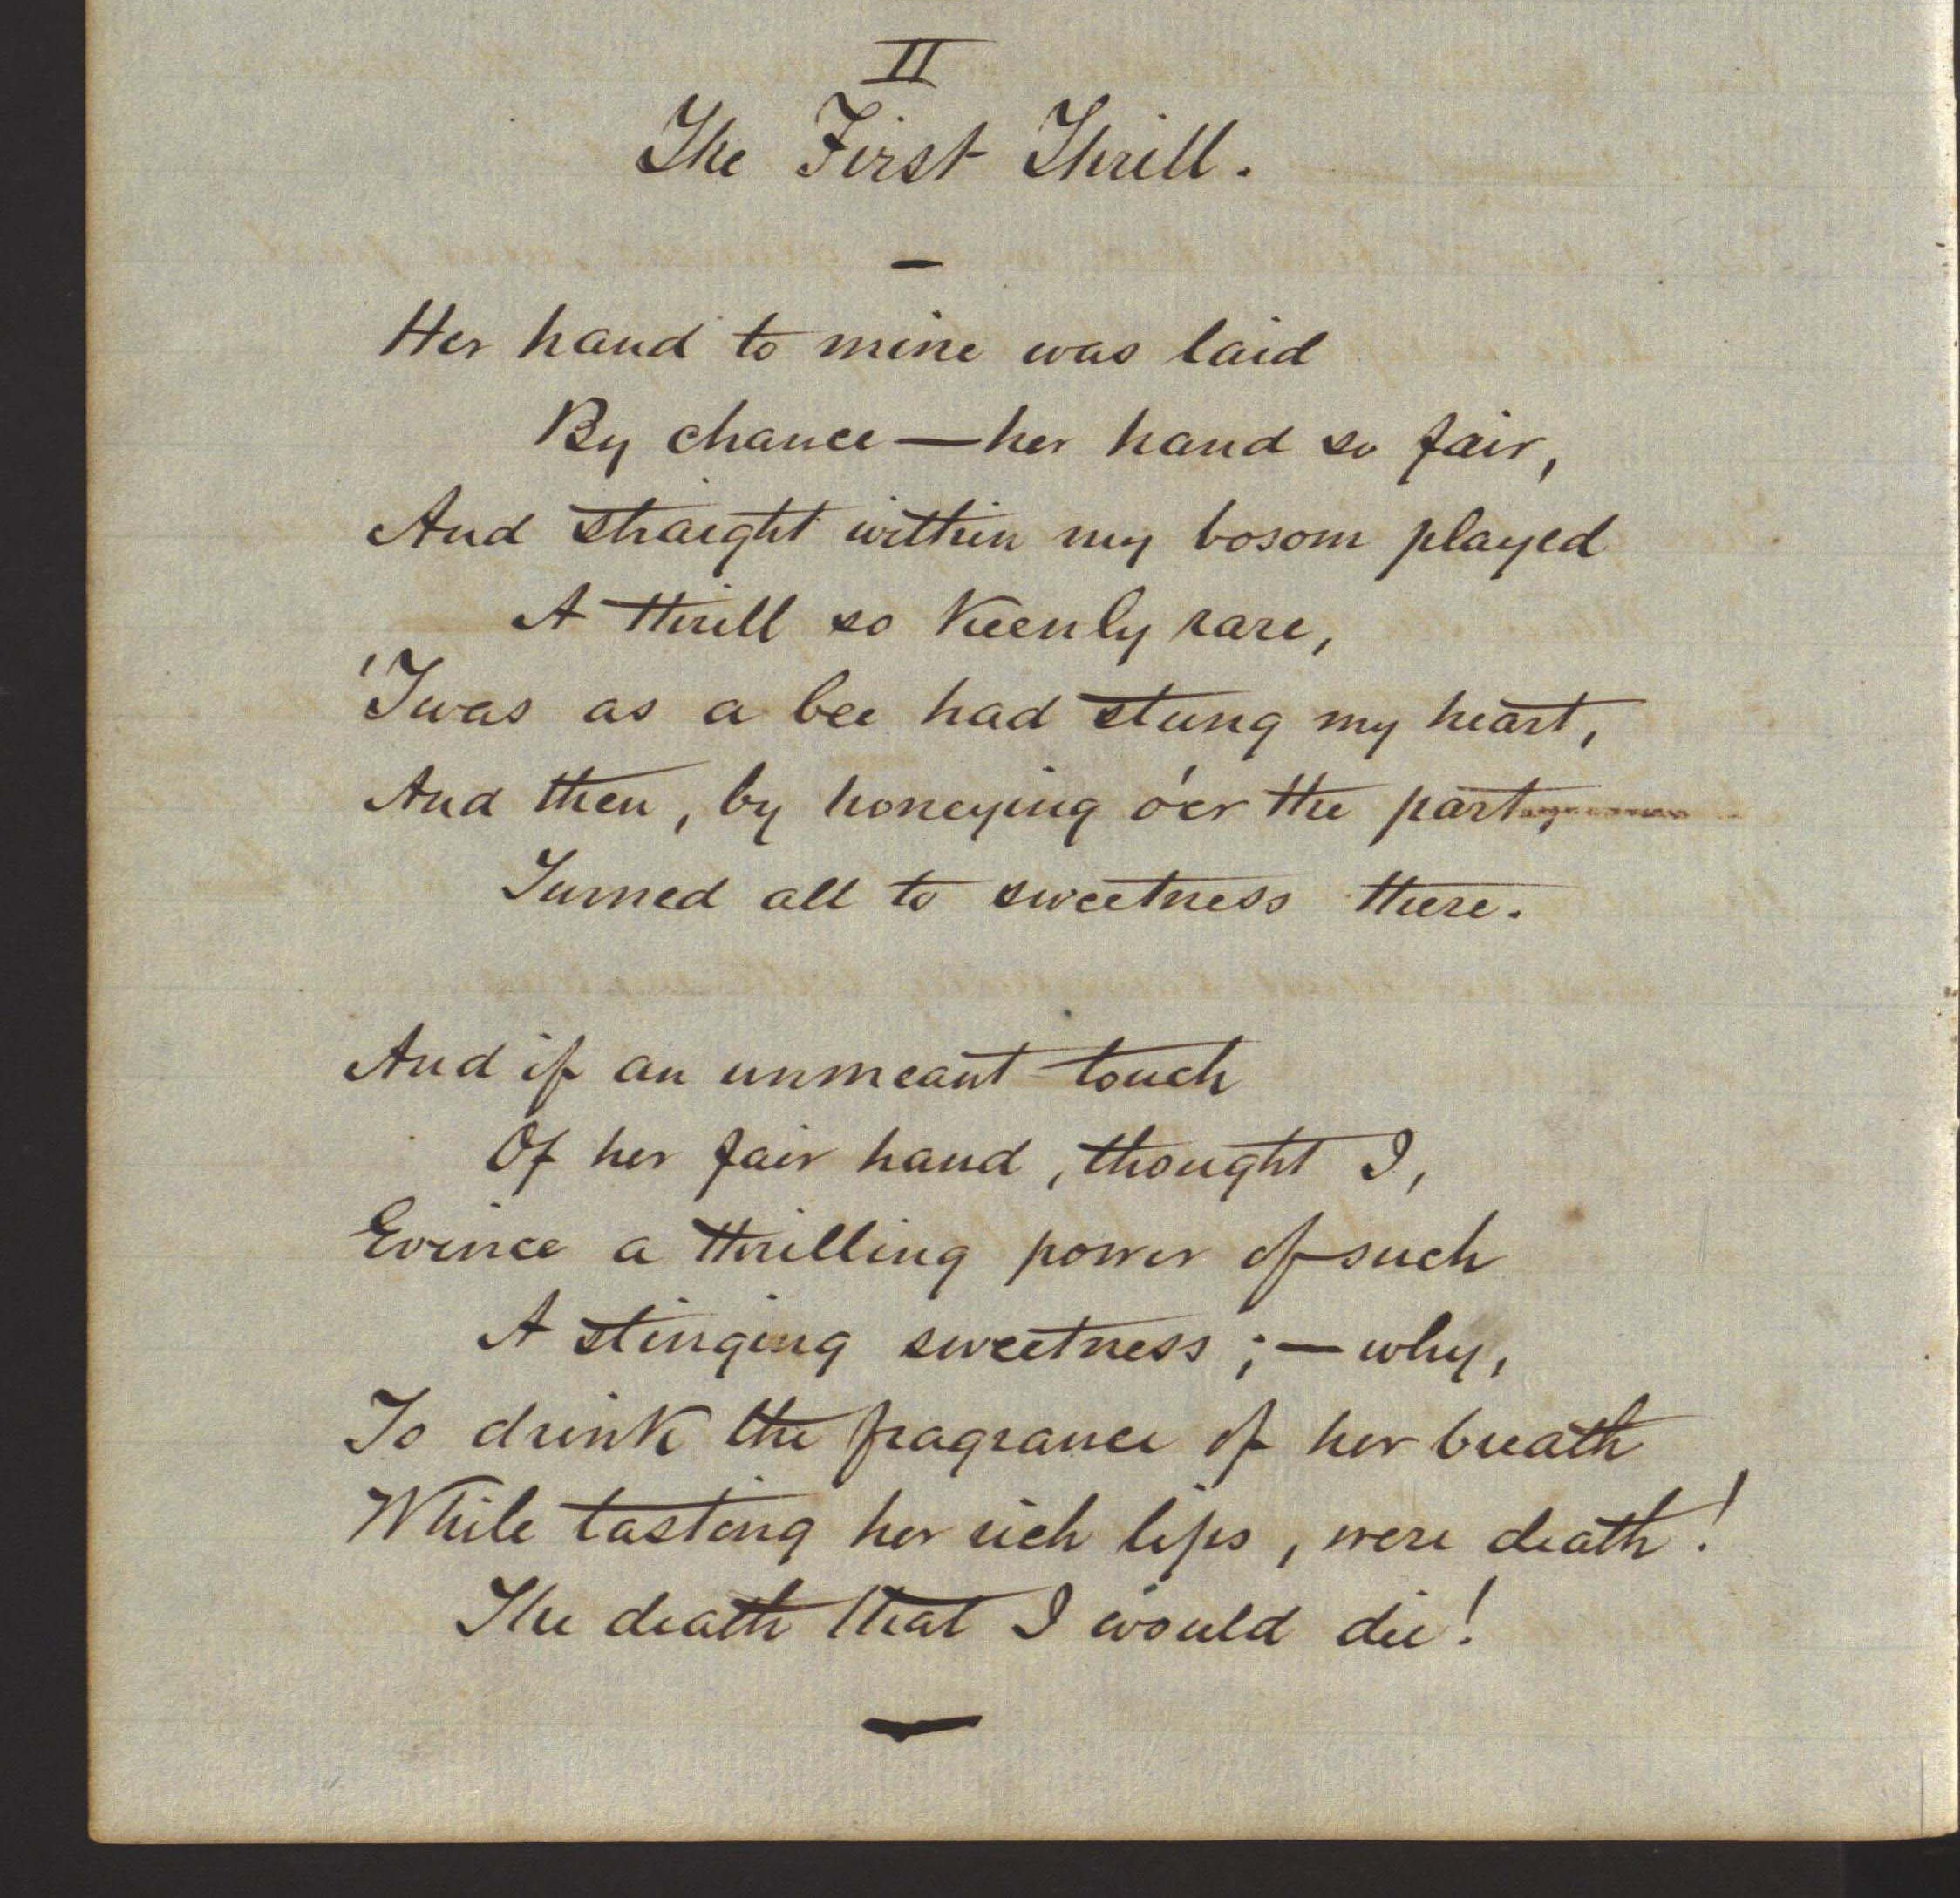 II
The First Thrill.
Her hand to mine was laid
By chance — her hand so fair,
And straight within my bosom played
A thrill so keenly rare,
'Twas as a bee had stung my heart,
And then, by honeying o'er the part,
Turned all to sweetness there.
And if an unmeant touch
Of her fair hand, thought I,
Evince a thrilling power of such
A stinging sweetness; — why,
To drink the fragrance of her breath
While tasting her rich lips, were death!
The death that I would die!